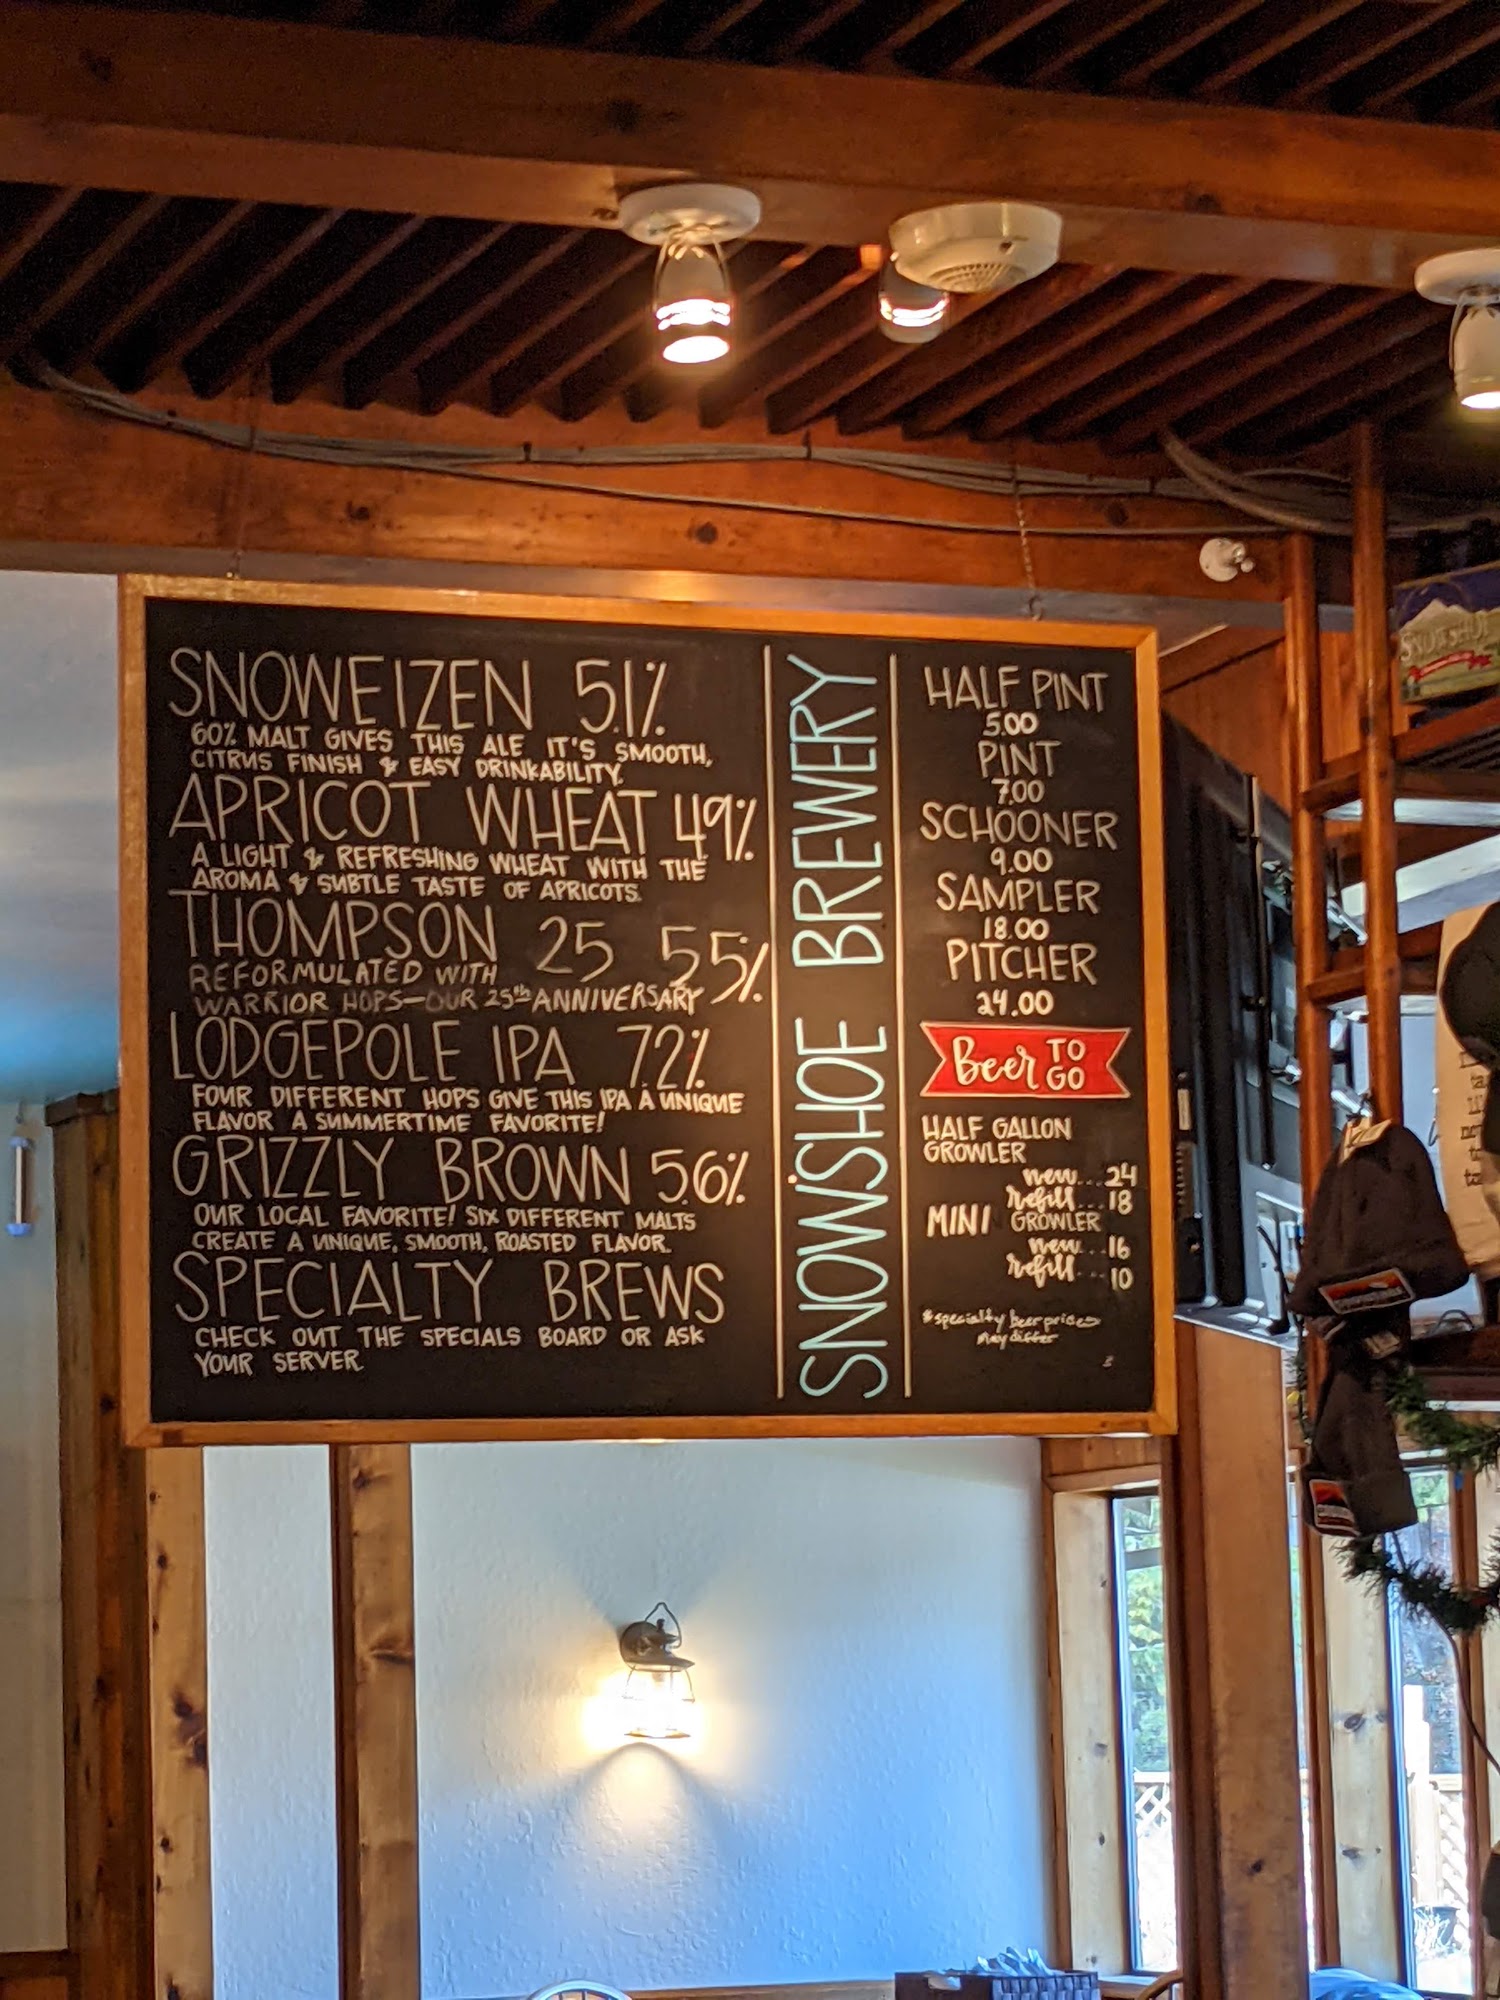 SNOWEIZEN 5.1%
60% MALT GIVES THIS ALE IT'S SMOOTH,
CITRUS FINISH & EASY DRINKABILITY.
APRICOT WHEAT 4.9%
A LIGHT & REFRESHING WHEAT WITH THE
AROMA & SUBTLE TASTE OF APRICOTS.
THOMPSON 25 5.5%
REFORMULATED WITH
WARRIOR HOPS—OUR 25th ANNIVERSARY
LODGEPOLE IPA 7.2%
FOUR DIFFERENT HOPS GIVE THIS IPA A UNIQUE
FLAVOR A SUMMERTIME FAVORITE!
GRIZZLY BROWN 5.6%
OUR LOCAL FAVORITE! SIX DIFFERENT MALTS
CREATE A UNIQUE, SMOOTH, ROASTED FLAVOR.
SPECIALTY BREWS
CHECK OUT THE SPECIALS BOARD OR ASK
YOUR SERVER.
SNOWSHOE BREWERY
HALF PINT
5.00
PINT
7.00
SCHOONER
9.00
SAMPLER
18.00
PITCHER
24.00
Beer TO GO
HALF GALLON
GROWLER
new...24
refill...18
MINI GROWLER
new...16
refill...10
*specialty beer prices
may differ
SNOWSHOE